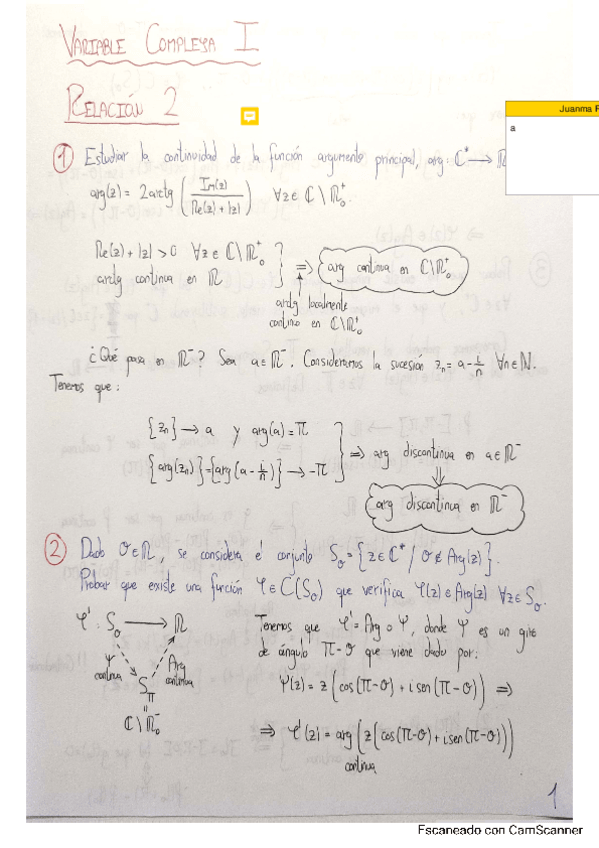 VARIABLE COMPLEJA I
RELACIÓN 2
Juanma
a
① Estudiar la continuidad de la función argumento principal, arg: ℂ* → ℝ
arg(z) = 2arctg (Im(z) / (Re(z) + |z|)) ∀z∈ ℂ\ℝ₀⁺.
Re(z) + |z| > 0 ∀z∈ ℂ\ℝ₀⁺
arctg continua en ℝ
⇒ arg continua en ℂ\ℝ₀⁺
arctg localmente
continua en ℂ\ℝ₀⁺
¿Qué pasa en ℝ⁻? Sea a∈ℝ⁻. Consideramos la sucesión zₙ = a - i/n ∀n∈ℕ.
Tenemos que:
{zₙ} → a y arg(a) = π
{arg(zₙ)} = {arg(a - i/n)} → -π
⇒ arg discontinua en a∈ℝ⁻
⇓
arg discontinua en ℝ⁻
② Dado θ∈ℝ, se considera el conjunto S_θ = {z∈ℂ* / θ ∉ Arg(z)}.
Probar que existe una función φ∈C(S_θ) que verifica φ(z)∈Arg(z) ∀z∈S_θ.
φ': S_θ → ℝ
ψ
continua
Arg
continua
S_π
=
ℂ\ℝ₀⁻
Tenemos que φ' = Arg∘ψ, donde ψ es un giro
de ángulo π-θ que viene dado por:
ψ(z) = z (cos(π-θ) + i sen(π-θ)) ⇒
⇒ φ'(z) = arg (z(cos(π-θ) + i sen(π-θ)))
continua
1
Escaneado con CamScanner